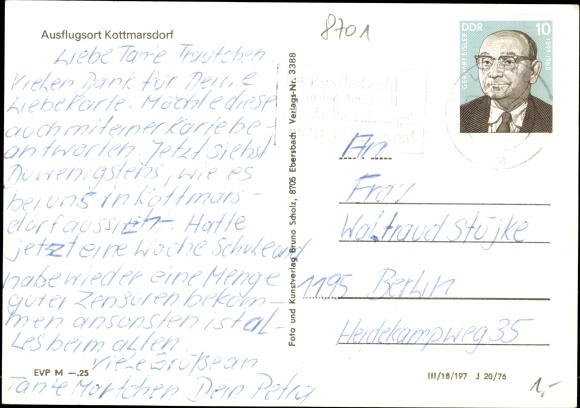 Ausflugsort Kottmarsdorf
8701
Liebe Tante Trautchen
Vielen Dank für Deine
Liebe Karte. Möchte diese
auch mit einer Karte be-
antworten. Jetzt siehst
Du wenigstens, wie es
bei uns in Kottmars-
dorf aussieht. Hatte
jetzt eine Woche Schule und
habe wieder eine Menge
guter Zensuren bekom-
men ansonsten ist al-
les beim alten.
Viele Grüße an
Tante Martchen Dein Petra
EVP M —.25
Foto und Kunstverlag Bruno Scholz, 8705 Ebersbach Verlags-Nr. 3388
DDR 10
GERHART EISLER 1897-1968
An
Frau
Waltraud Stüjke
1195 Berlin
Heidekampweg 35
III/18/197 J 20/76
1,-